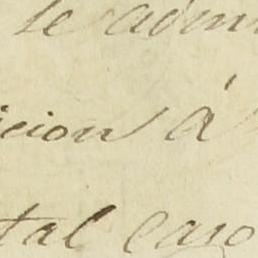 se admi
icion á
tal carg